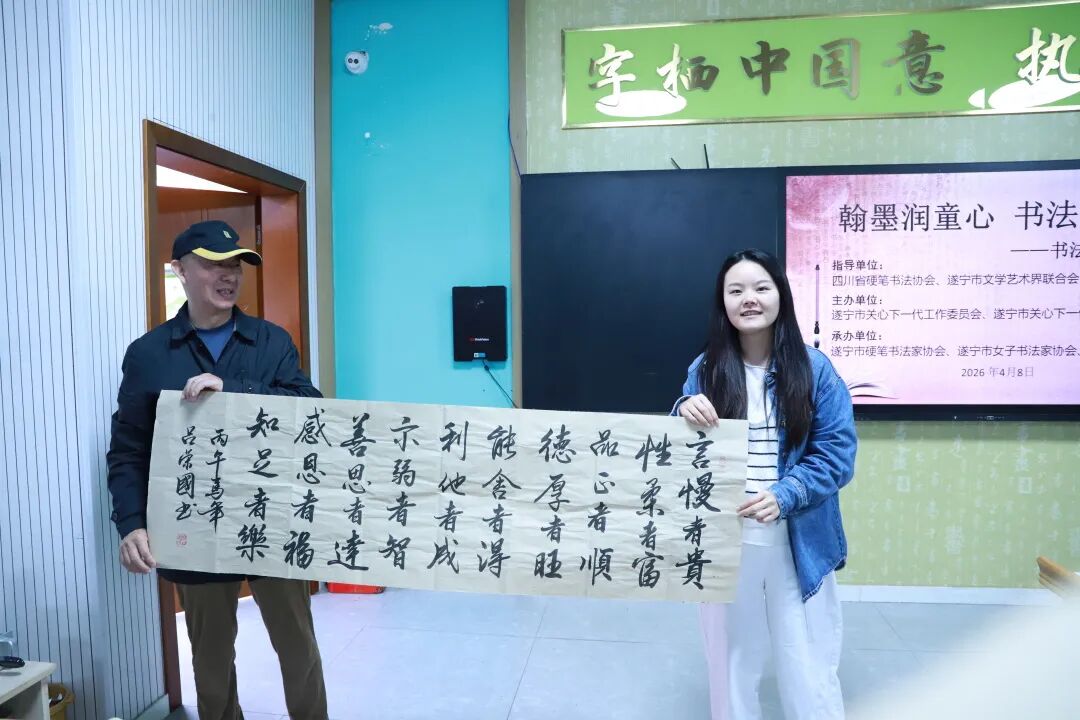 字栖中国意 热
翰墨润童心 书法
——书法
指导单位：
四川省硬笔书法协会、遂宁市文学艺术界联合会
主办单位：
遂宁市关心下一代工作委员会、遂宁市关心下一
承办单位：
遂宁市硬笔书法家协会、遂宁市女子书法家协会、
2026 年4月8日
言慢者貴
性柔者富
品正者順
德厚者旺
能舍者得
利他者成
示弱者智
善思者達
感恩者福
知足者樂
丙午馬年
吕荣國书